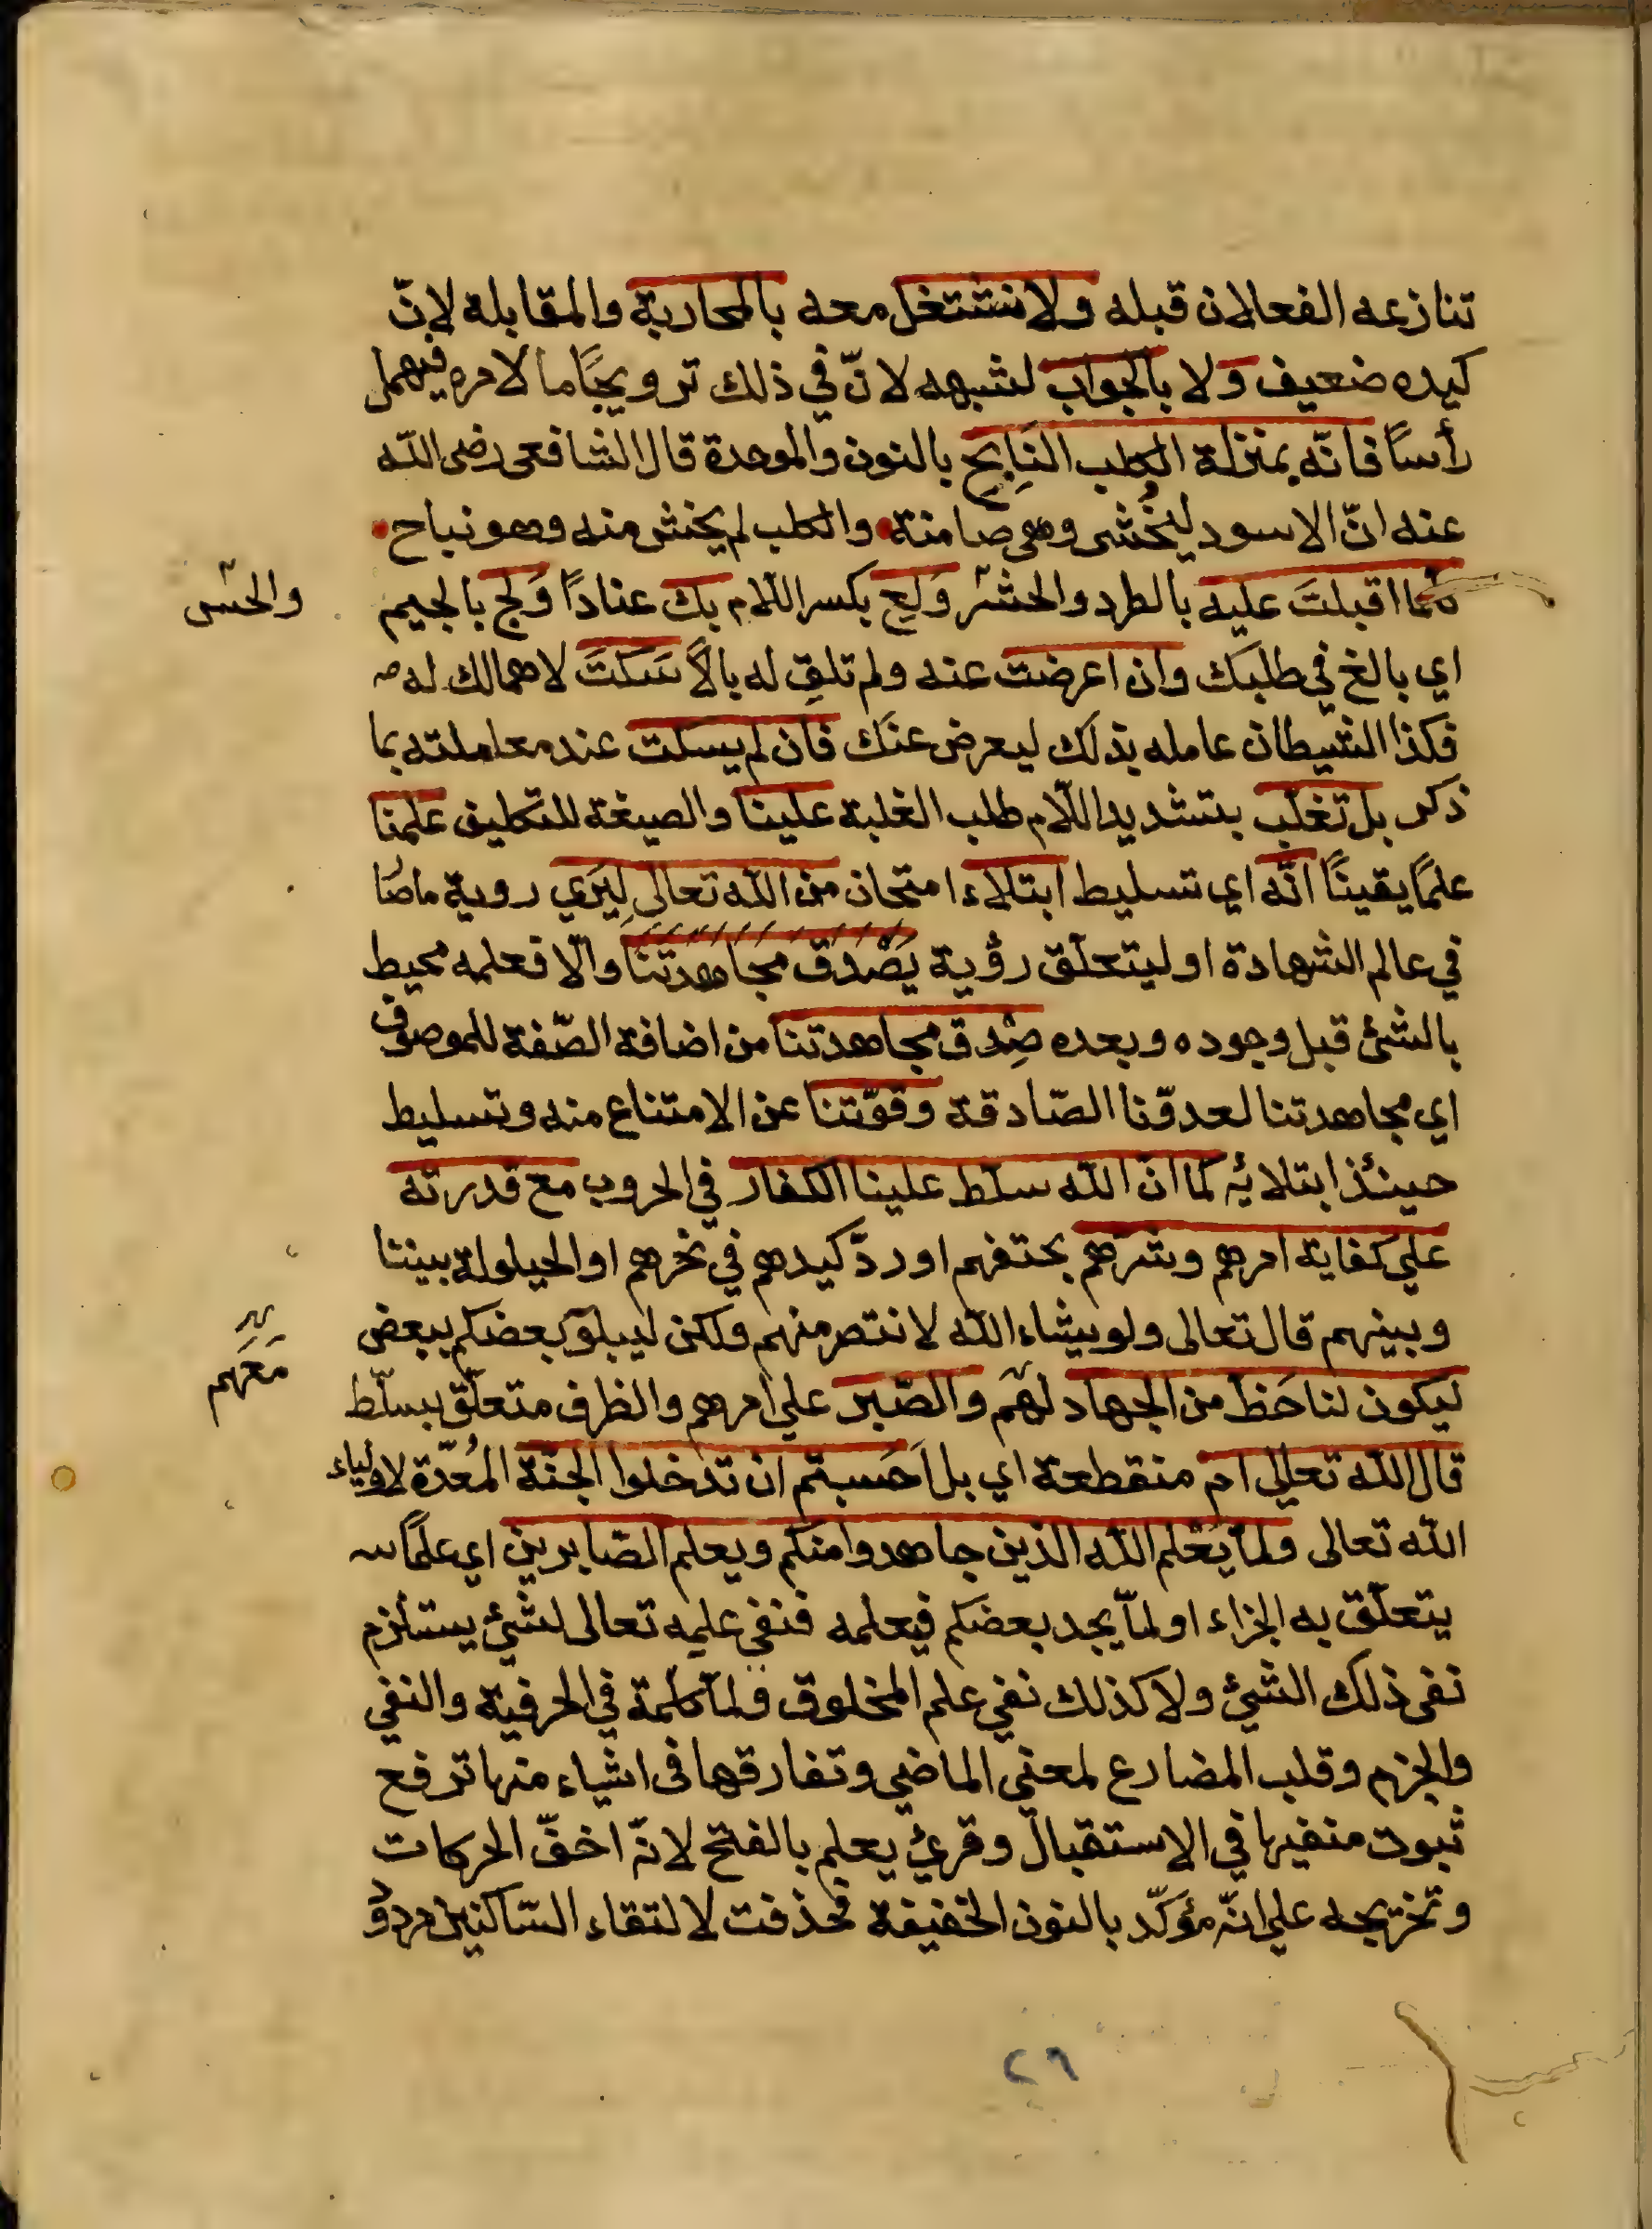 تنازعه الفعلان قبله ولا نشتغل معه بالمحاربة والمقابلة لانّ
كيده ضعيف ولا بالجواب لشبهه لانّ في ذلك ترويجًا ما لامره فيهمل
رأسًا فانّه بمنزلة الكلب النَابِحِ بالنون والموحدة قال الشافعى رضى الله
عنه انّ الاسود ليُخْشى وهى صامتة والكلب لم يخش منه وهو نباح
كلما اقبلتَ عليه بالطرد والحشّر وَلِع بكسر اللام بك عنادًا وَلَج بالجيم
والحسّ
اي بالغ في طلبك وان اعرضت عنه ولم تلقِ له بالًا سَكَتَ لاهمالك له
فكذا الشيطان عامله بذلك ليعرض عنك فان لم يسكت عند معاملته بما
ذكر بل تغلّب بتشديد اللّام طلب الغلبة علينا والصيغة للتكليف علمنا
علمًا يقينًا انّه اي تسليط ابتلاء امتحان من الله تعالى لِيَري روية ماصًا
في عالم الشهادة او ليتعلّق رؤية يَصْدق مجاهدتنا والّا فعلمه محيط
بالشئ قبل وجوده وبعده صِدق مجاهدتنا من اضافة الصّفة للموصوف
اي مجاهدتنا لعدوّنا الصّادقة وقوّتنا عن الامتناع منه وتسليط
حينئذ ابتلائه كما انّ الله سلّط علينا الكفار في الحروب مع قدرته
علي كفاية امرهم وشرّهم بحتفهم او ردّ كيدهم في نحرهم او الحيلولة بيننا
وبينهم قال تعالى ولو يشاء الله لانتصر منهم ولكن ليبلو بعضكم ببعض
ليكون لنا حَظّ من الجهاد لهم والصّبر علي امرهم والظرف متعلّق بسلّط
مَعَهم
قال الله تعالي ام منقطعة اي بل اَحَسبتم ان تدخلوا الجنّة المُعدّة لاولياء
الله تعالى ولمّا يَعْلم الله الذين جاهدوا منكم ويعلم الصّابرين اي علمًا
يتعلّق به الجزاء او لمّا يجد بعضكم فيعلمه فنفي علمه تعالى لشئ يستلزم
نفى ذلك الشئ ولا كذلك نفي علم المخلوق ولمّا كلمة في الحرفية والنفي
والجزم وقلب المضارع لمعني الماضي وتفارقها فى اشياء منها ترفع
ثبوت منفيها في الاستقبال وقرئ يعلم بالفتح لانّه اخفّ الحركات
وتخريجه علي انّه مؤكّد بالنون الخفيفة فحُذفت لالتقاء السّاكنين مردوُ
٢٦